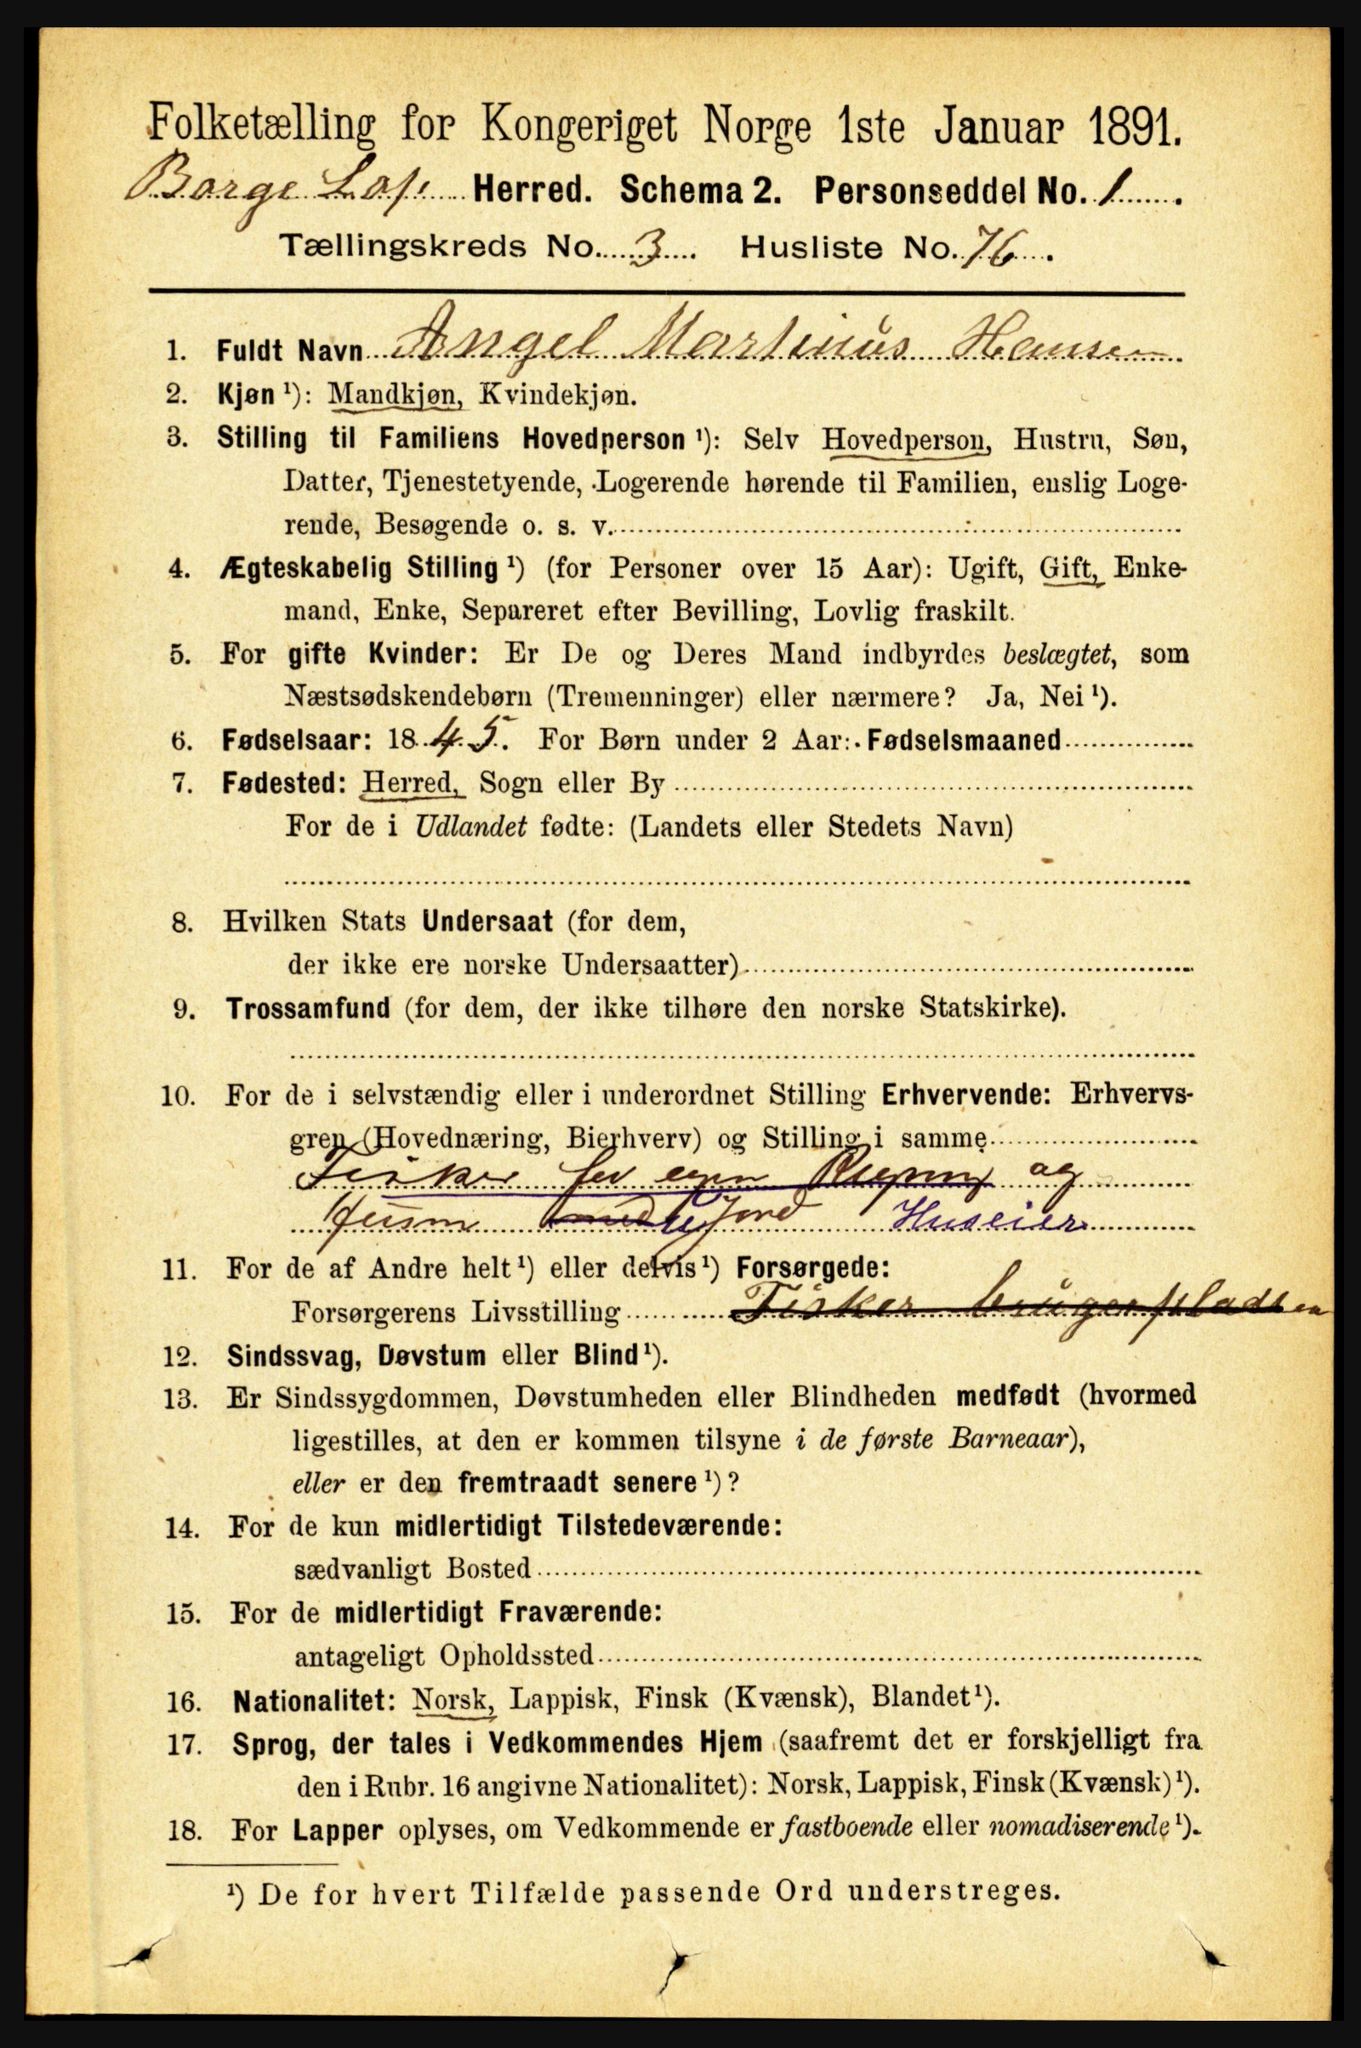 Folketælling for Kongeriget Norge 1ste Januar 1891.
Borge Lof. Herred. Schema 2. Personseddel No. 1.
Tællingskreds No. 3. Husliste No. 76.
1. Fuldt Navn Angel Martinus Hansen
2. Kjøn ¹): Mandkjøn, Kvindekjøn.
3. Stilling til Familiens Hovedperson ¹): Selv Hovedperson, Hustru, Søn,
Datter, Tjenestetyende, Logerende hørende til Familien, enslig Loge-
rende, Besøgende o. s. v.
4. Ægteskabelig Stilling ¹) (for Personer over 15 Aar): Ugift, Gift, Enke-
mand, Enke, Separeret efter Bevilling, Lovlig fraskilt.
5. For gifte Kvinder: Er De og Deres Mand indbyrdes beslægtet, som
Næstsødskendebørn (Tremenninger) eller nærmere? Ja, Nei ¹).
6. Fødselsaar: 1845. For Børn under 2 Aar: Fødselsmaaned
7. Fødested: Herred, Sogn eller By
For de i Udlandet fødte: (Landets eller Stedets Navn)
8. Hvilken Stats Undersaat (for dem,
der ikke ere norske Undersaatter)
9. Trossamfund (for dem, der ikke tilhøre den norske Statskirke).
10. For de i selvstændig eller i underordnet Stilling Erhvervende: Erhvervs-
gren (Hovednæring, Bierhverv) og Stilling i samme
Fisker for egen Regning og
Jord Huseier
11. For de af Andre helt ¹) eller delvis ¹) Forsørgede:
Forsørgerens Livsstilling Fisker bruger pladsen
12. Sindssvag, Døvstum eller Blind ¹).
13. Er Sindssygdommen, Døvstumheden eller Blindheden medfødt (hvormed
ligestilles, at den er kommen tilsyne i de første Barneaar),
eller er den fremtraadt senere ¹)?
14. For de kun midlertidigt Tilstedeværende:
sædvanligt Bosted
15. For de midlertidigt Fraværende:
antageligt Opholdssted
16. Nationalitet: Norsk, Lappisk, Finsk (Kvænsk), Blandet ¹).
17. Sprog, der tales i Vedkommendes Hjem (saafremt det er forskjelligt fra
den i Rubr. 16 angivne Nationalitet): Norsk, Lappisk, Finsk (Kvænsk) ¹).
18. For Lapper oplyses, om Vedkommende er fastboende eller nomadiserende ¹).
¹) De for hvert Tilfælde passende Ord understreges.